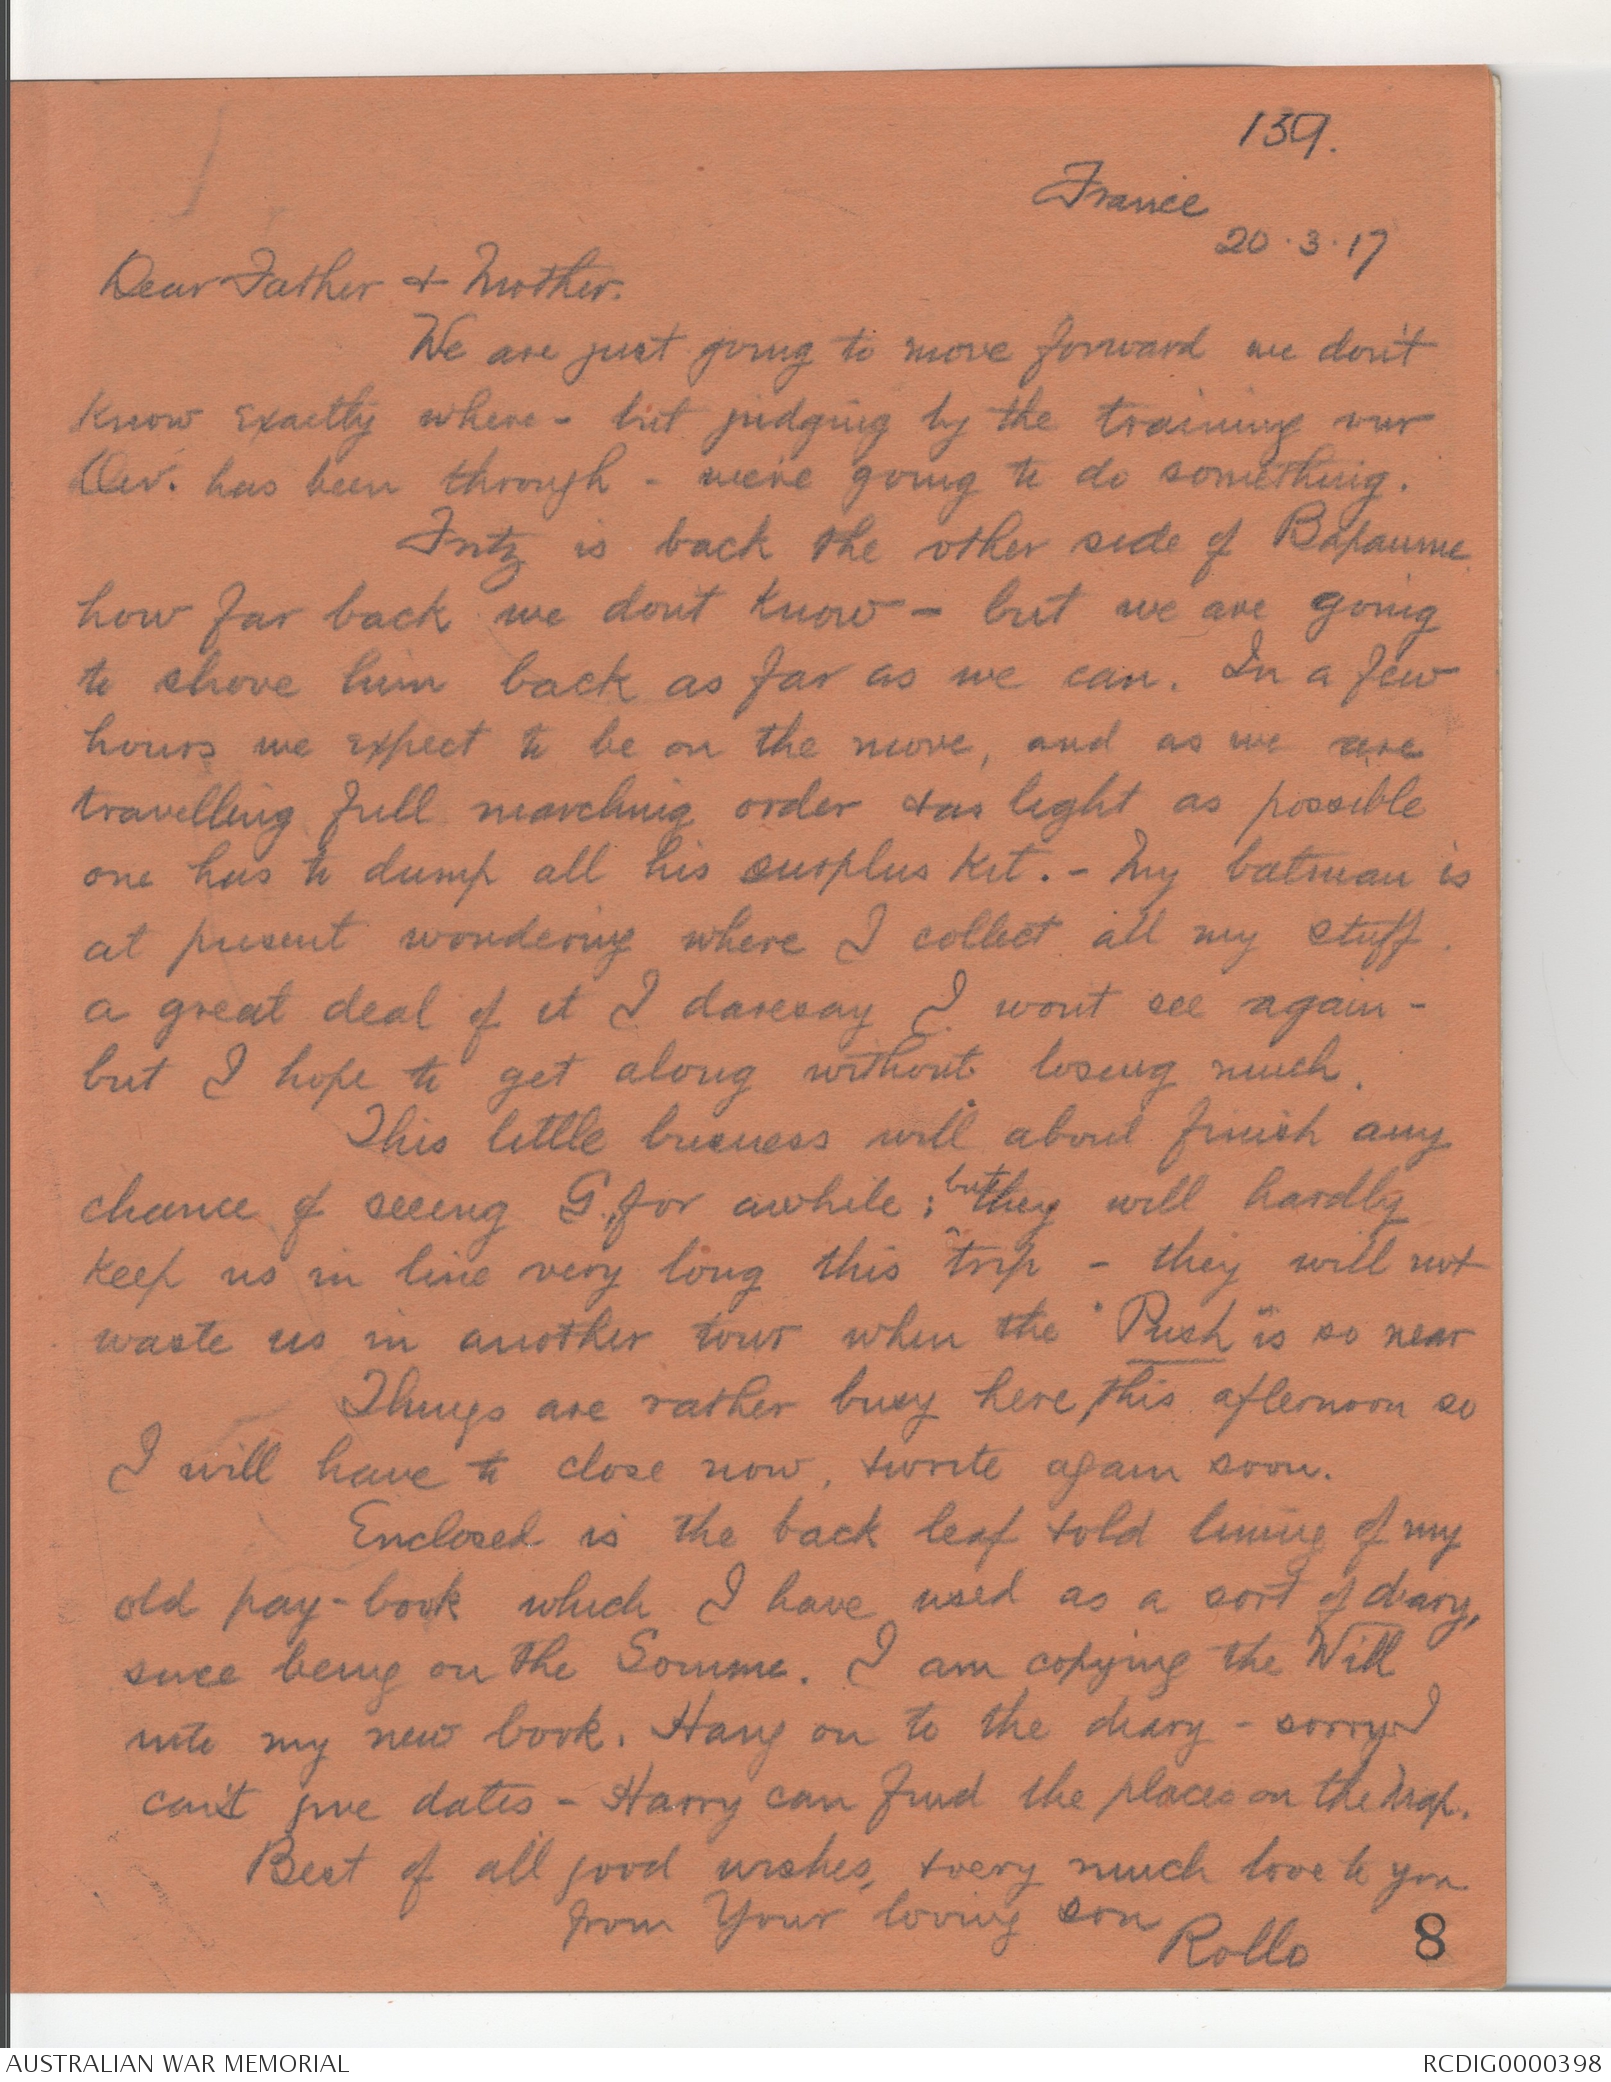 139.
France
20.3.17
Dear Father & Mother.
We are just going to move forward we don't
know exactly where - but judging by the training our
Div. has been through - we're going to do something.
Fritz is back the other side of Bapaume
how far back we dont know - but we are going
to shove him back as far as we can. In a few
hours we expect to be on the move, and as we are
travelling full marching order & as light as possible
one has to dump all his surplus kit. - My batman is
at present wondering where I collect all my stuff.
a great deal of it I daresay I wont see again -
but I hope to get along without losing much.
This little business will about finish any
chance of seeing G. for awhile; but they will hardly
keep us in line very long this trip - they will not
waste us in another tour when the "Push" is so near
Things are rather busy here, this afternoon so
I will have to close now, & write again soon.
Enclosed is the back leaf & old lining of my
old pay-book which I have used as a sort of diary,
since being on the Somme. I am copying the Will
into my new book. Hang on to the diary - sorry I
can't give dates - Harry can find the places on the Map.
Best of all good wishes, & very much love to you
from Your loving son
Rollo
8
AUSTRALIAN WAR MEMORIAL
RCDIG0000398